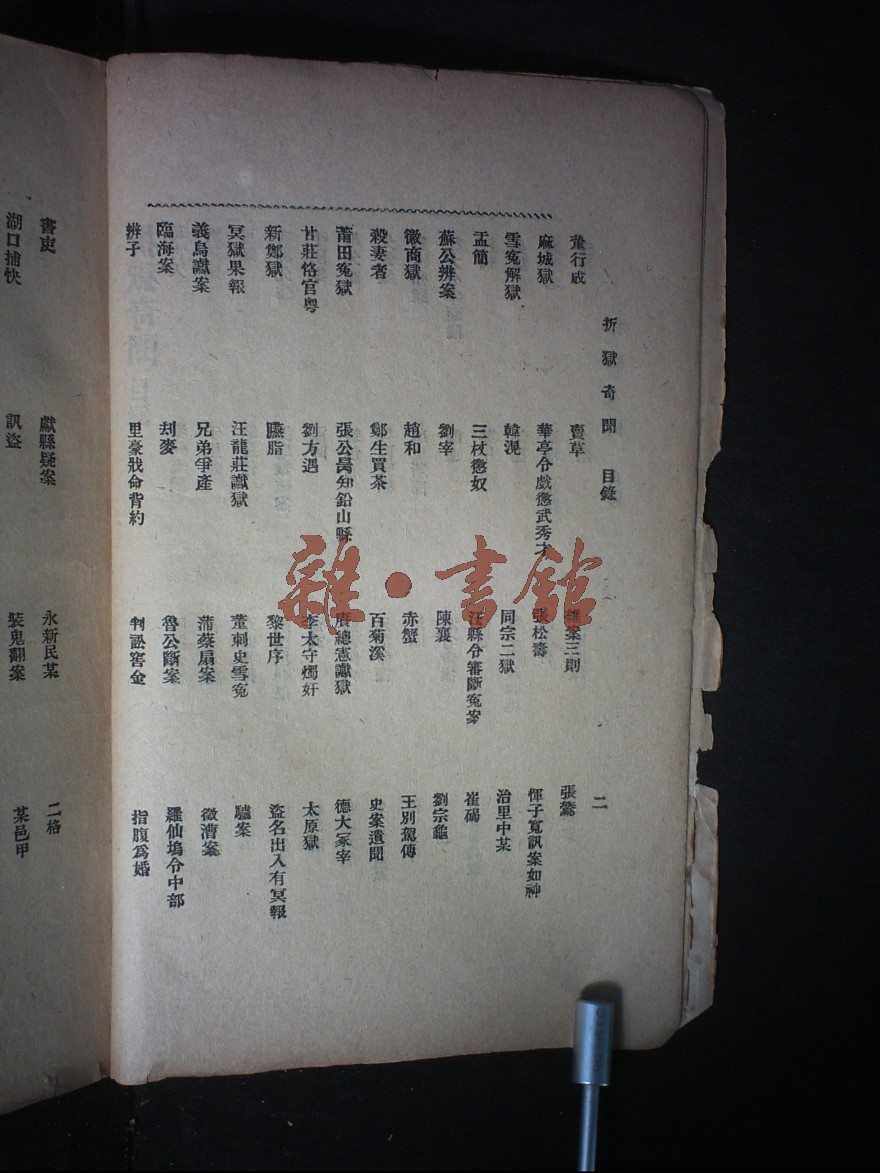 折獄奇聞 目錄 二
董行成 賣草 疑案三則 張鷟
麻城獄 華亭令戲懲武秀才 張松壽 惲子寬訊案如神
雪冤解獄 韓滉 同宗二獄 治里中某
孟簡 三杖懲奴 汪縣令審斷冤案 崔碣
蘇公辨案 劉宰 陳襄 劉宗龜
徽商獄 趙和 赤蟹 王別駕傳
殺妻者 鄭生買茶 百菊溪 史案遺聞
莆田冤獄 張公昺知鉛山縣 廣總憲讞獄 德大冢宰
甘莊恪官粵 劉方遇 李太守燭奸 太原獄
新鄭獄 臙脂 黎世序 盜名出入有冥報
冥獄果報 汪龍莊讞獄 董刺史雪冤 驢案
義烏讞案 兄弟爭產 蒲葵扇案 徵漕案
臨海案 刦麥 魯公斷案 羅仙塢令中部
辨子 里豪戕命背約 判訟窖金 指腹為婚
書吏 獻縣疑案 永新民某 二格
湖口捕快 訊盜 裝鬼翻案 某邑甲
雜·書館